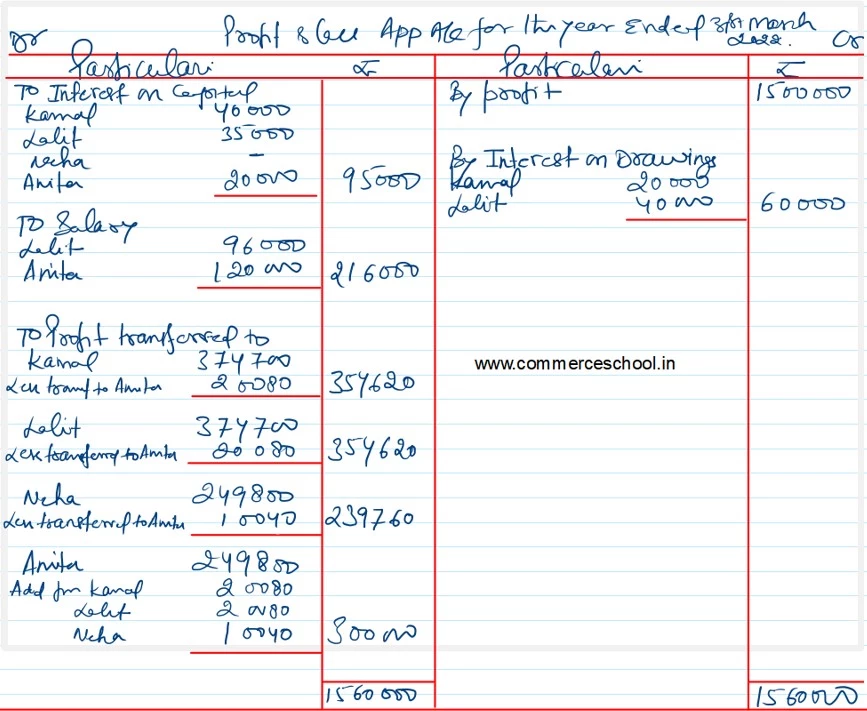 Dr Profit & Loss App A/c for the year Ended 31st March 2022. Cr
Particulars ₹ Particulars ₹
To Interest on Capital
Kamal 40000
Lalit 35000
Necha –
Anita 20000 95000
To Salary
Lalit 96000
Anita 120000 216000
To Profit transferred to
Kamal 374700
Less transf to Anita 20080 354620
Lalit 374700
Less transferred to Anita 20080 354620
Neha 249800
Less transferred to Anita 10040 239760
Anita 249800
Add from Kamal 20080
Lalit 20080
Neha 10040 300000
1560000
By profit 1500000
By Interest on Drawings
Kamal 20000
Lalit 40000 60000
www.commerceschool.in
1560000